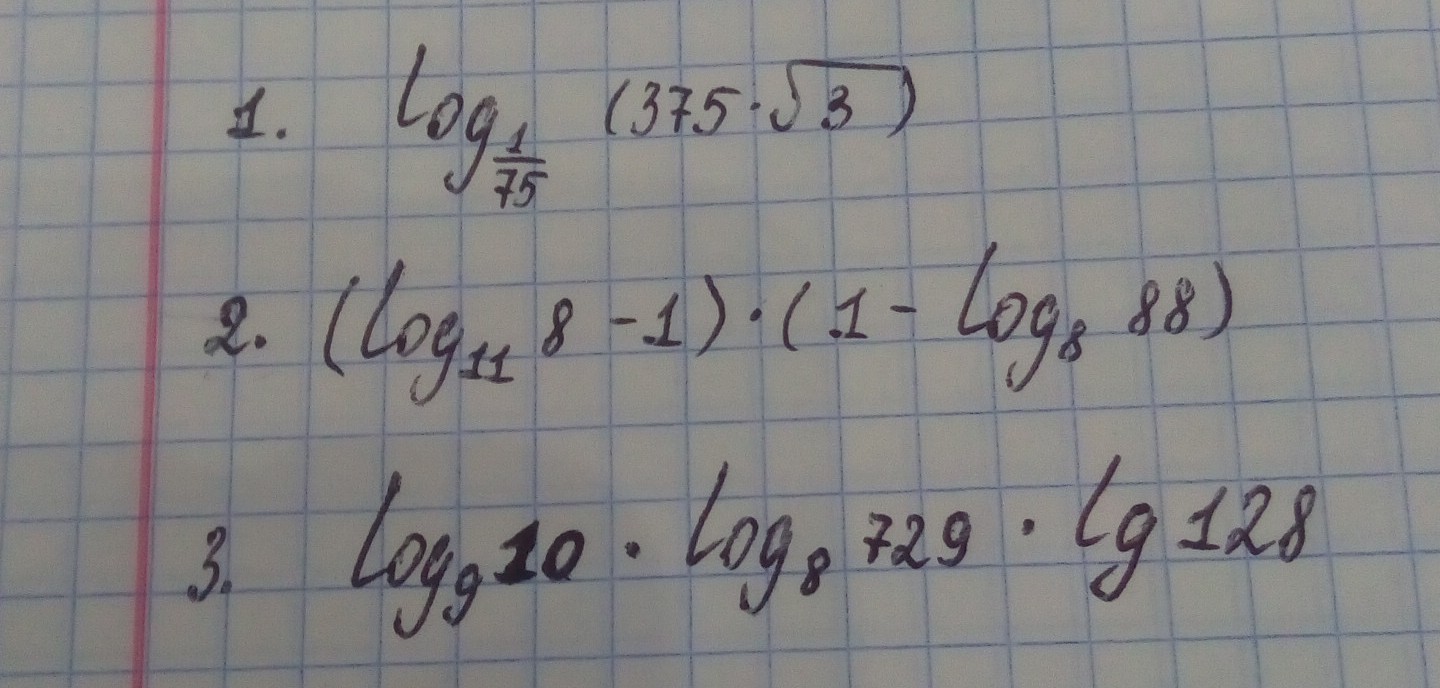 1. log_{\frac{1}{75}} (375·√3)
2. (log₁₁ 8 - 1)·(1 - log₈ 88)
3. log₉ 10 · log₈ 729 · lg 128